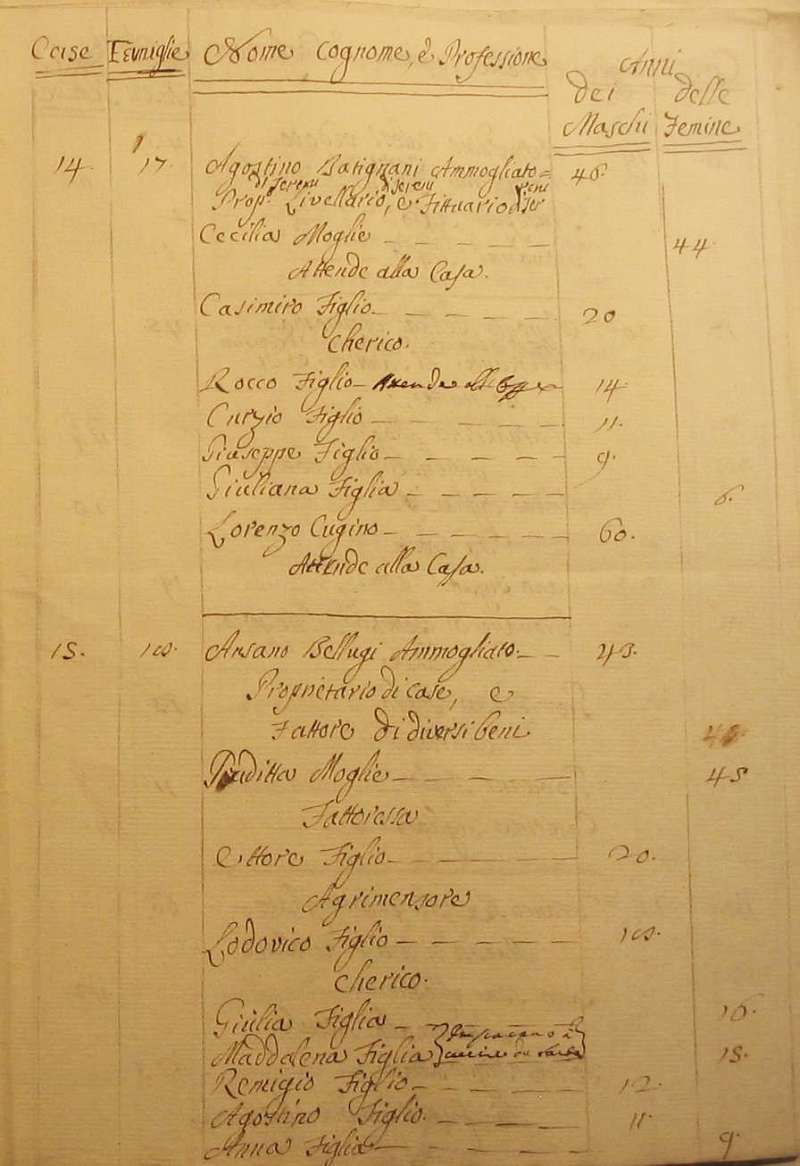 Case Famiglie Nome, Cognome, è Professione Anni
dei delle
Maschi Femine
14. 17 Agostino Batignani Ammogliato = 46.
Prop. Livellario, e Fittuario
Cecilia Moglie 44.
Attende alla Casa.
Casimiro Figlio 20
Cherico.
Rocco Figlio 14
Curzio Figlio 11.
Giuseppe Figlio 9.
Giuliana Figlia 6.
Lorenzo Cugino 60.
Attende alla Casa.
15. 18. Ansano Bellugi Ammogliato 43.
Proprietario di case, e
Fattore di diversi beni
Giuditta Moglie 45
Fattoressa
Ettore Figlio 20.
Agrimensore
Lodovico Figlio 18.
Cherico.
Giulia Figlia 16.
Maddalena Figlia 15.
Remigio Figlio 12.
Agostino Figlio 11.
Anna Figlia 9.